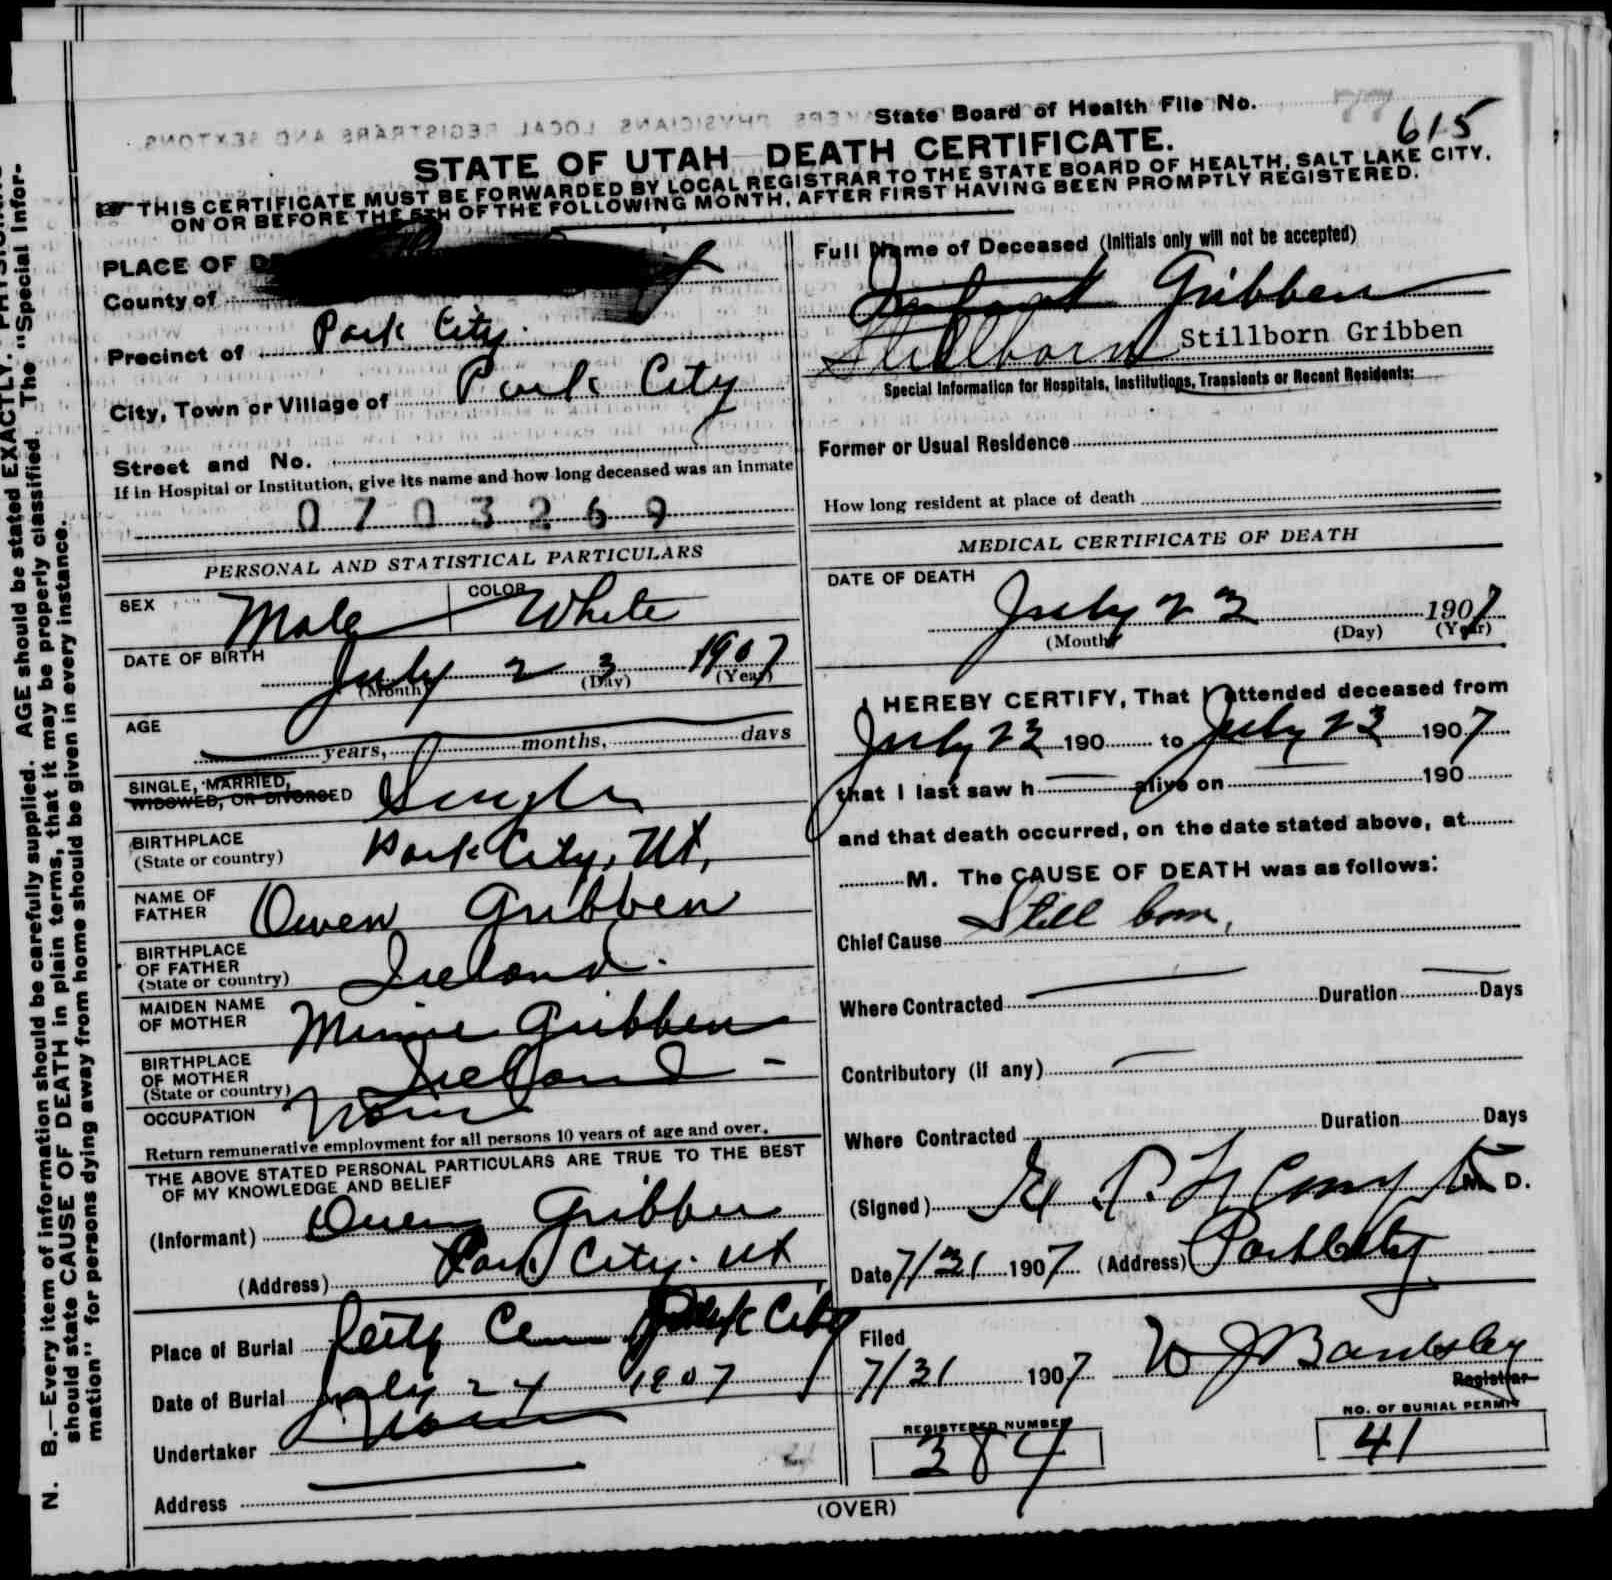 State Board of Health File No.
615
STATE OF UTAH DEATH CERTIFICATE.
THIS CERTIFICATE MUST BE FORWARDED BY LOCAL REGISTRAR TO THE STATE BOARD OF HEALTH, SALT LAKE CITY,
ON OR BEFORE THE 5TH OF THE FOLLOWING MONTH, AFTER FIRST HAVING BEEN PROMPTLY REGISTERED.
PLACE OF
County of
Precinct of Park City.
City, Town or Village of Park City
Street and No.
If in Hospital or Institution, give its name and how long deceased was an inmate
0703269
Full Name of Deceased (Initials only will not be accepted)
Infant Gribben
Stillborn Stillborn Gribben
Special Information for Hospitals, Institutions, Transients or Recent Residents:
Former or Usual Residence
How long resident at place of death
PERSONAL AND STATISTICAL PARTICULARS
SEX Male COLOR White
DATE OF BIRTH July 23 1907
(Month) (Day) (Year)
AGE
years, months, days
SINGLE, MARRIED,
WIDOWED, OR DIVORCED Single
BIRTHPLACE
(State or country) Park City, Ut,
NAME OF
FATHER Owen Gribben
BIRTHPLACE
OF FATHER
(State or country) Ireland.
MAIDEN NAME
OF MOTHER Minnie Gribben
BIRTHPLACE
OF MOTHER
(State or country) Ireland -
OCCUPATION None
Return remunerative employment for all persons 10 years of age and over.
THE ABOVE STATED PERSONAL PARTICULARS ARE TRUE TO THE BEST
OF MY KNOWLEDGE AND BELIEF
(Informant) Owen Gribben
(Address) Park City. Ut
Place of Burial City Cem Park City
Date of Burial July 24 1907
Undertaker None
Address
MEDICAL CERTIFICATE OF DEATH
DATE OF DEATH
July 23 1907
(Month) (Day) (Year)
I HEREBY CERTIFY, That I attended deceased from
July 23 190 to July 23 1907
that I last saw h alive on 190
and that death occurred, on the date stated above, at
M. The CAUSE OF DEATH was as follows:
Chief Cause Still born,
Where Contracted Duration Days
Contributory (if any)
Where Contracted Duration Days
(Signed) M. D.
Date 7/31 1907 (Address) Park City
Filed
7/31 1907 W J Bardsley
Registrar
REGISTERED NUMBER
384
NO. OF BURIAL PERMIT
41
(OVER)
N. B.—Every item of information should be carefully supplied. AGE should be stated EXACTLY.
should state CAUSE OF DEATH in plain terms, that it may be properly classified. The "Special Infor-
mation" for persons dying away from home should be given in every instance.